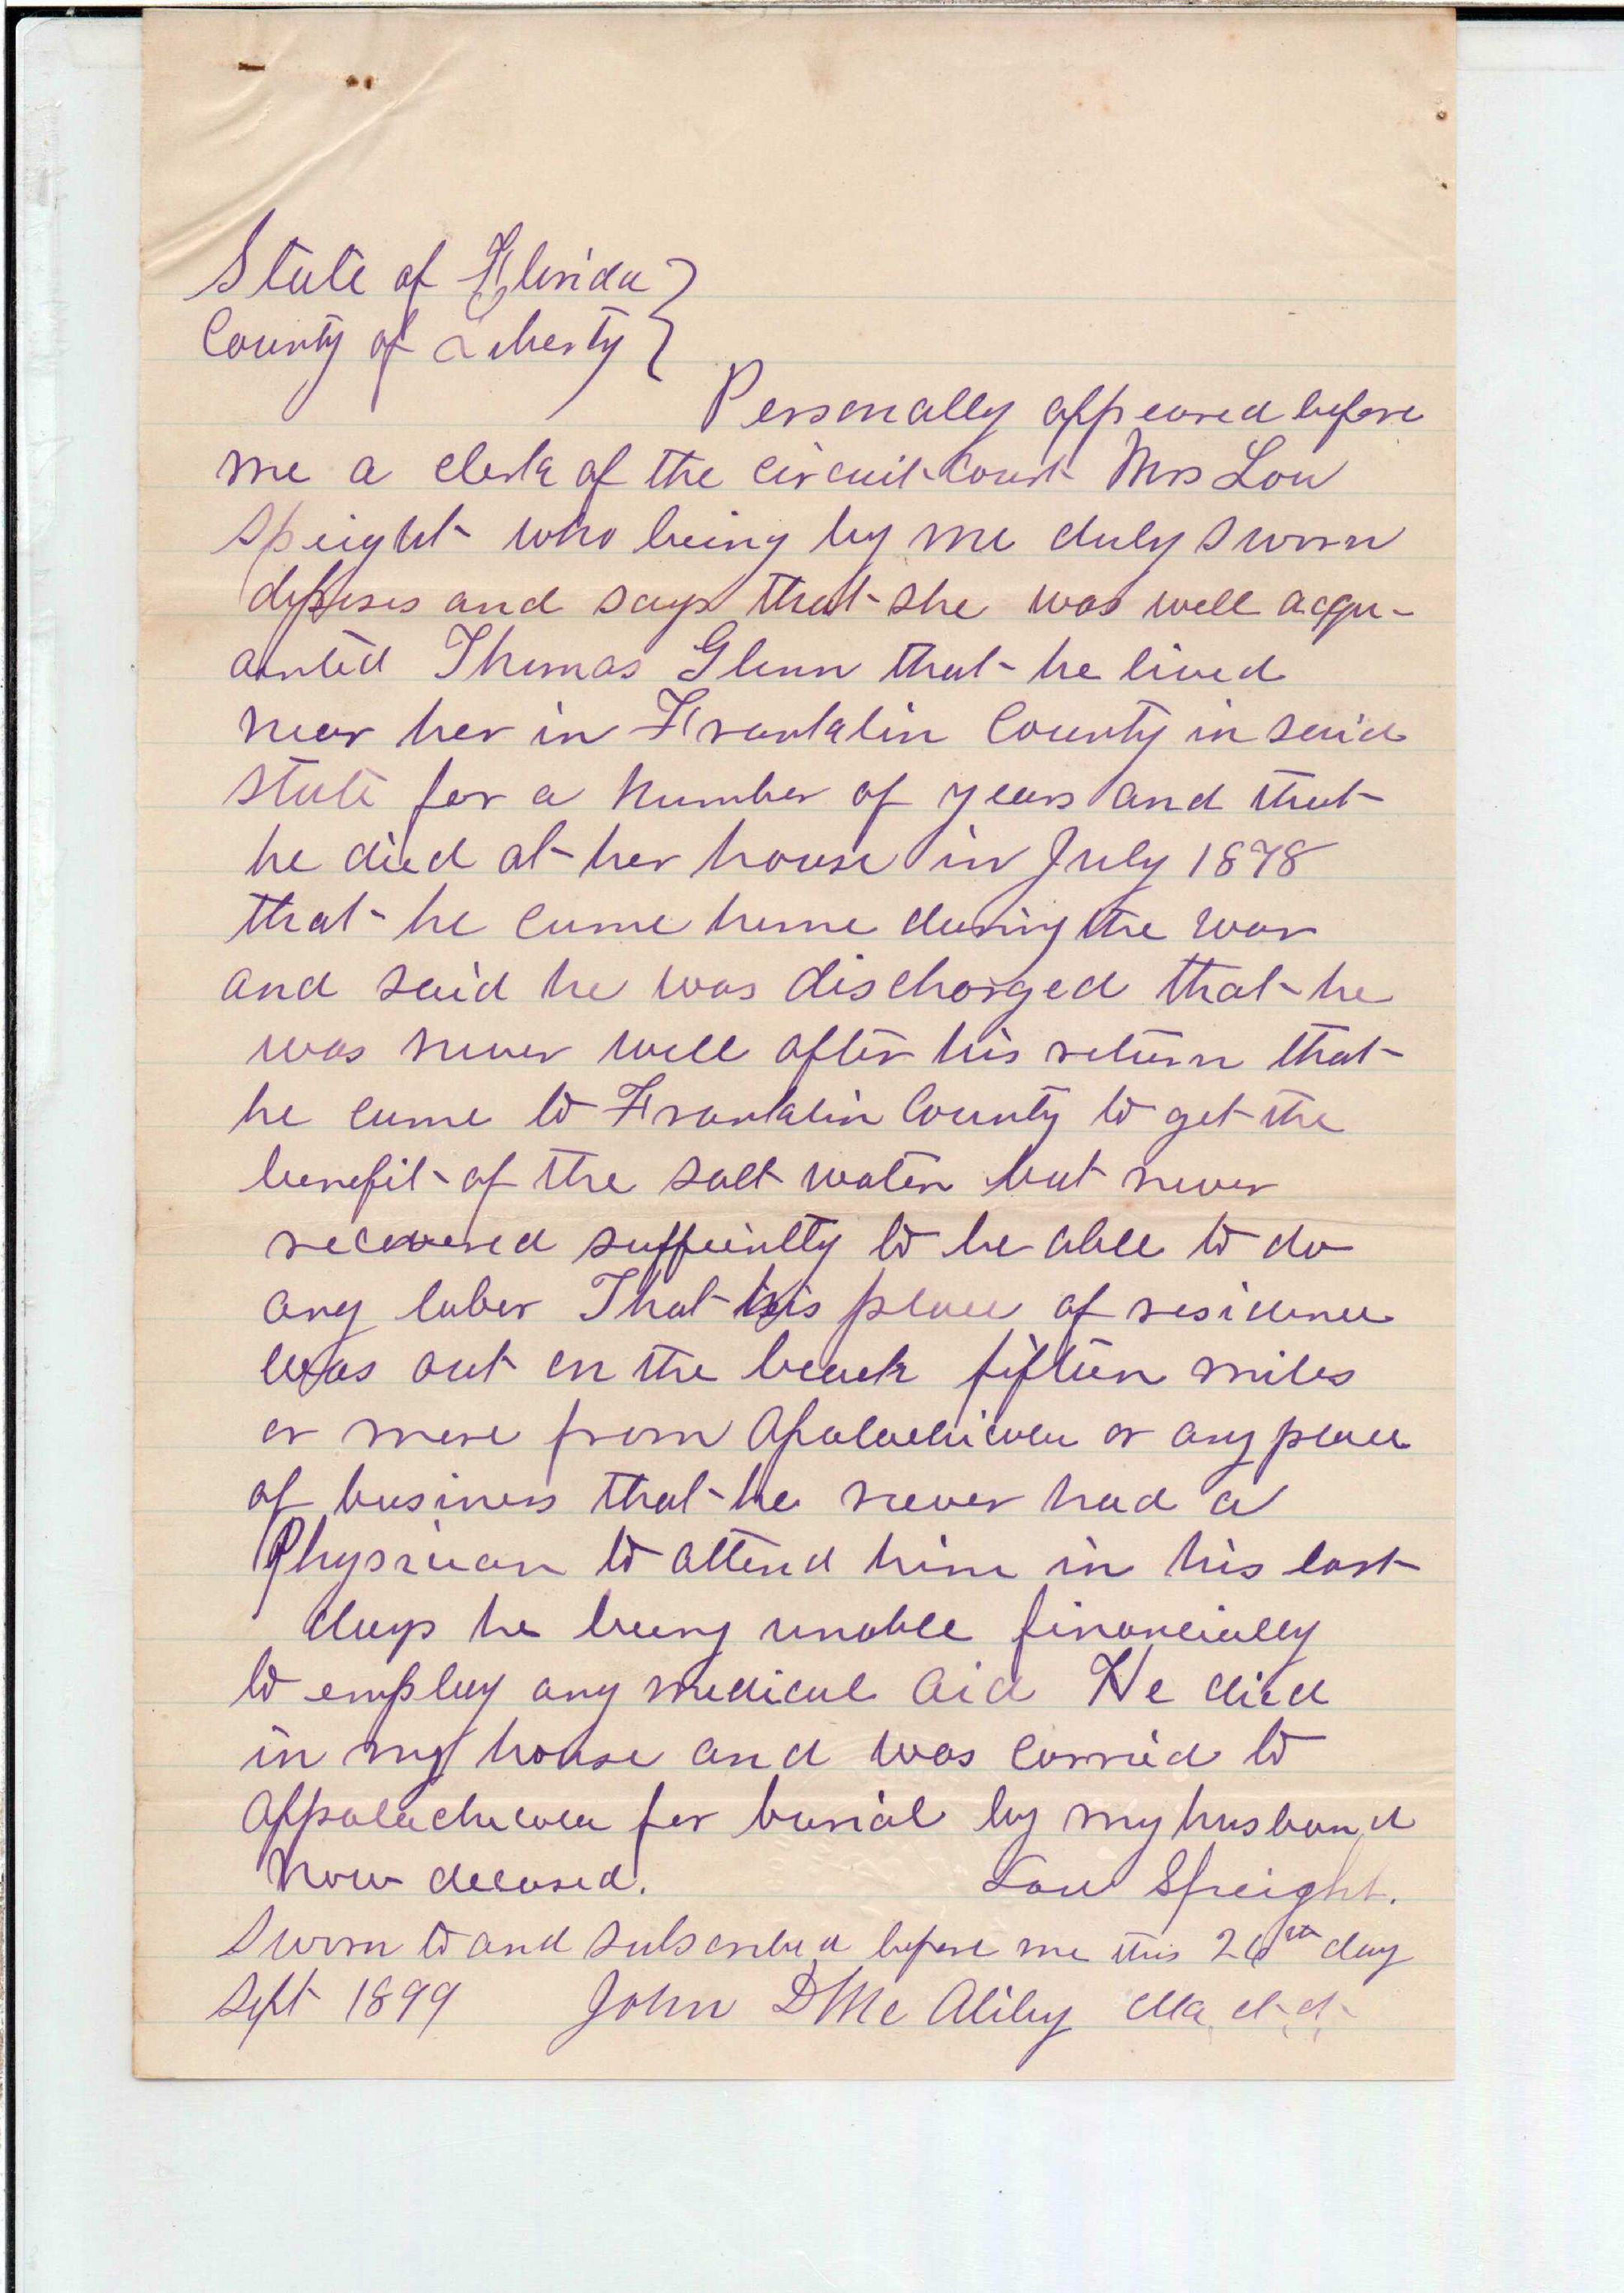 State of Florida }
County of Liberty }
Personally appeared before
me a clerk of the circuit court Mrs Lou
Speight who being by me duly sworn
deposes and says that she was well acqu-
anted Thomas Glenn that he lived
near her in Franklin County in said
state for a number of years and that
he died at her house in July 1878
that he came home during the war
and said he was discharged that he
was never well after his return that
he came to Franklin County to get the
benefit of the salt water but never
recovered sufficintly to be able to do
any labor That his place of residence
was out on the beach fifteen miles
or more from Apalachicola or any place
of business that he never had a
Physician to attend him in his last
days he being unable financially
to employ any medical aid He died
in my house and was carried to
Appalachicola for burial by my husband
now deceased. Lou Speight.
Sworn to and subscribed before me this 26th day
Sept 1899 John D Mc Aliley